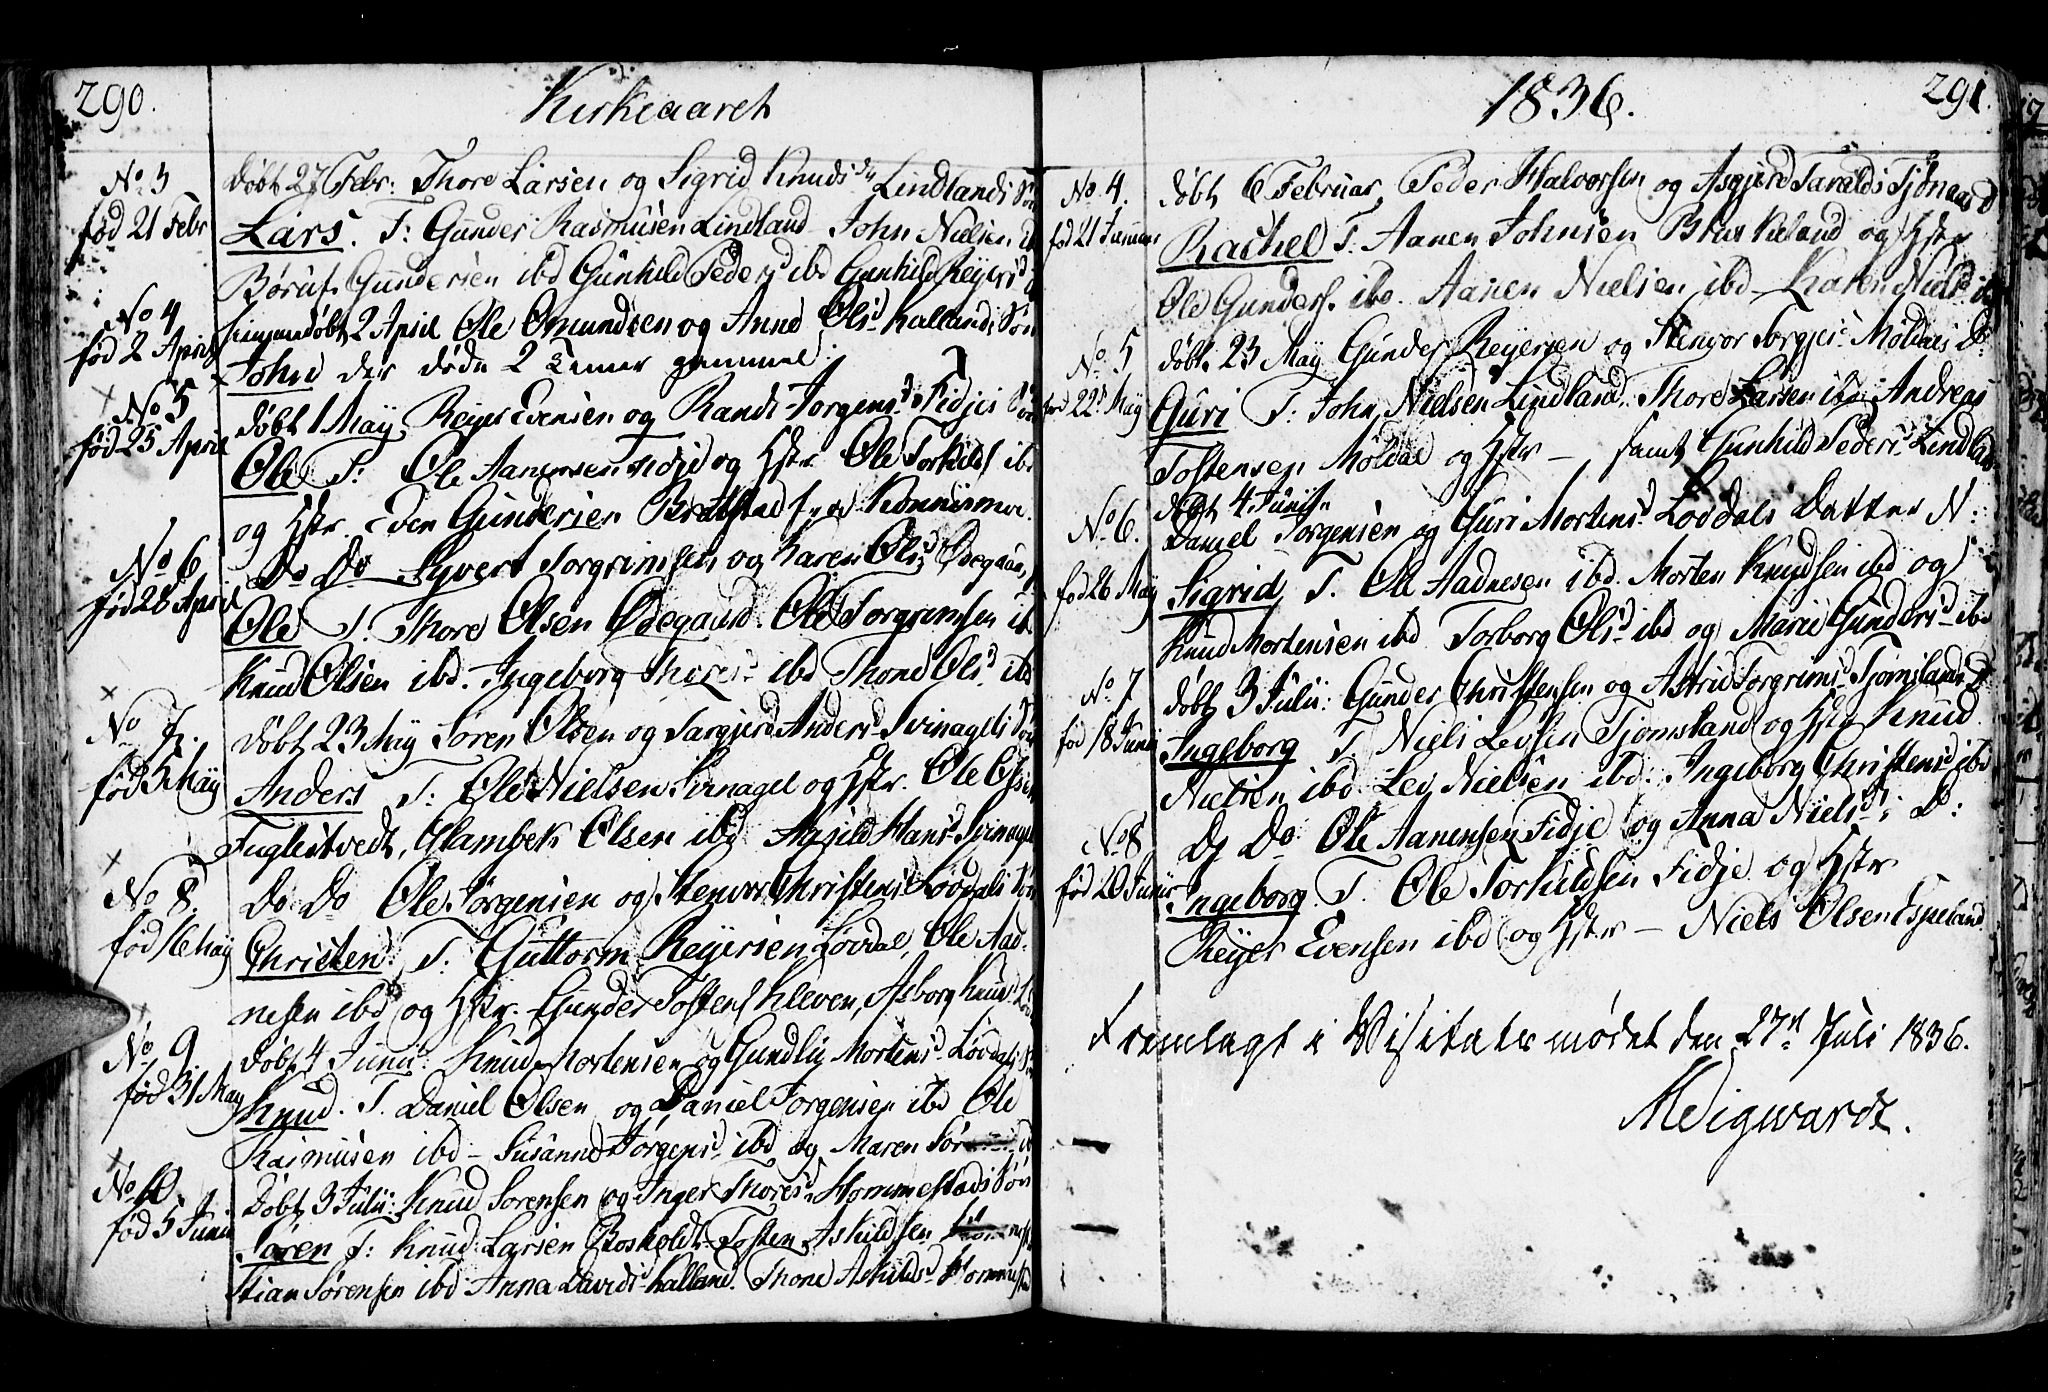 290.
Kirkeaaret
No 3
født 21 Febr
døbt 27 Febr: Thore Larsen og Sigrid Knudsd. Lindlands Søn
Lars. T: Gunder Rasmusen Lindland - John Nielsen
Gundersen ibd Gunhild Pedersd ibd Gunhild Reyersd
No 4
fød 2 April
hjemmedøbt 2 April Ole Omundsen og Anne Olsd Kallands Søn
John der døde 2 Timer gammel.
No 5
fød 25 April
døbt 1 May Reyer Evensen og Randi Jørgensd. Fidjes Søn
Ole T: Ole Aanensen Fidje og Hstr Ole Torkilds ibd
og Hstr. Even Gundersen
No 6
fød 28 April
Do Do Syvert Torgrimsen og Karen Olsd Ødegaards
Ole T. Thore Olsen Ødegaard. Ole Torgrimsen ibd
Knud Olsen ibd. Ingeborg Thoresd ibd Thone Olsd ibd
No 7.
fød 5 May
døbt 23 May Søren Olsen og Targjerd Andersd. Svinagels Søn
Anders T: Ole Nielsen Svinagel og Hstr. Ole
Fuglestvedt, Glambek Olsen ibd Hansd Svinagel
No 8.
fød 16 May
Do Do Ole Jørgensen og Stenvor Christensd Løvdals Søn
Christen. T. Guttorm Reyersen Løvdal, Ole Aad-
nesen ibd og Hstr. Gunder Tostens Kleven, Asborg Knudsd
No 9
fød 31 May
døbt 4 Junii. Knud Mortensen og Gundlig Mortensd. Løvdals Søn
Knud. T. Daniel Olsen og Daniel Jørgensen ibd Ole
Rasmusen ibd - Susanne Jørgensd. ibd og Maren
No 10
fød 5 Junii
Døbt 3 Julii: Knud Sørensen og Inger Thoresd. Hommestads Søn
Søren T: Knud Larsen Tosten Askildsen
Stian Sørensen ibd Anna Davidsd Kalland. Thone Askildsd
1836.
291.
No 4.
fød 21 Januar
døbt 6 Februar, Peder Halvorsen og Asgjerd Taraldsd
Rachel T. Aanen Johnsen og Hstr
Ole Gunders. ibd. Aanen Nielsen ibd - Karen Nielsd ibd
No 5
22 May
døbt 23 May Gunder Reyersen og Stenvor Torgjersd. Møldals D:
Guri T: John Nielsen Lindland. Thore Larsen ibd Andreas
Tostensen Møldal og Hstr - samt Gunhild Pedersd. Lindland
No 6.
fød 26 May
døbt 4 Junii
Daniel Jørgensen og Guri Mortensd. Løvdals Datter N:
Sigrid T. Ole Aadnesen ibd. Morten Knudsen ibd og
Knud Mortensen ibd Torborg Olsd ibd og Marie Gundersd ibd
No 7
fød 18 Junii
døbt 3 Julii: Gunder Christensen og Astrid Torgrimsd. Tjomslands D
Ingeborg T Niels Levsen Tjomsland og Hstr Knud
Nielsen ibd Lev Nielsen ibd. Ingeborg Christensd ibd
No 8
fød 20 Junii
Do Do Ole Aanensen Fidje og Anna Nielsd: D:
Ingeborg T. Ole Torkildsen Fidje og Hstr
Reyer Evensen ibd og Hstr - Niels Olsen Espeland.
Fremlagt i Visitatsmødet den 27de Juli 1836.